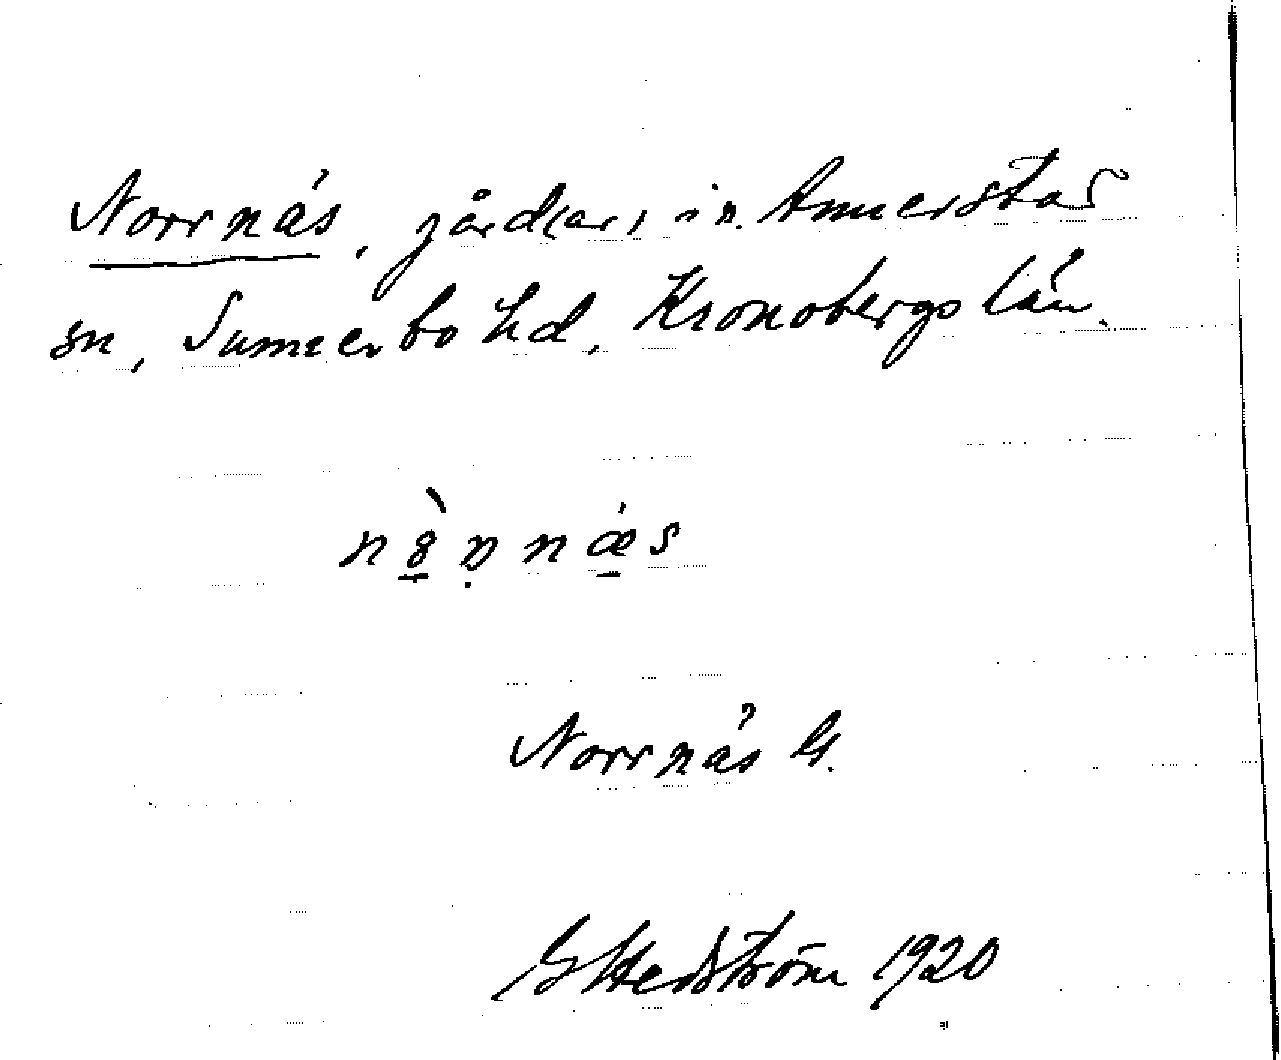 Norrnäs, gård(ar) i n. Annerstad
sn, Sunnerbo hd, Kronobergs län.
Norrnäs G.
G Hedström 1920